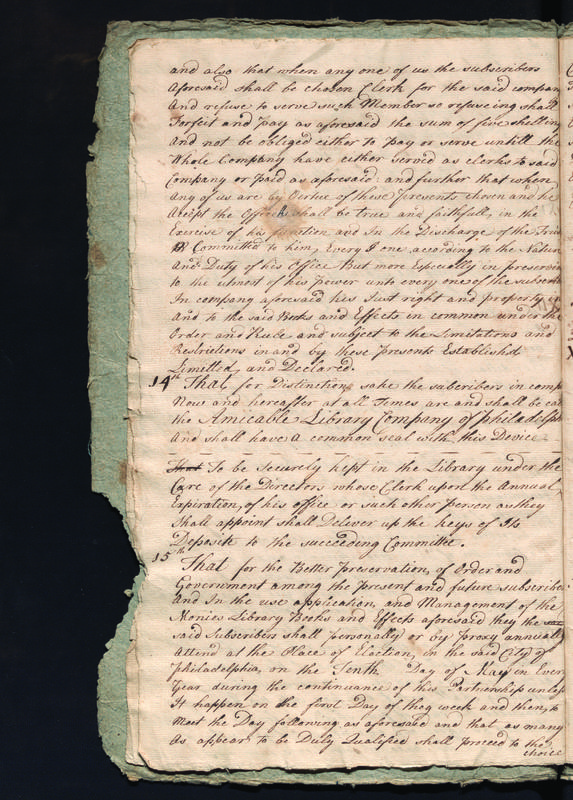 and also that when any one of us the subscribers
aforesaid shall be chosen Clerk for the said company
And refuse to serve such Member so refuseing shall
Forfeit and pay as aforesaid the sum of five shelling
And not be obliged either to pay or serve untill the
Whole Company have either served as clerks to said
Company or paid as aforesaid: and further that when
Any of us are by Vertue of these presents chosen and he
Accept the Office he shall be true and faithfull, in the
Exercise of his function and In the Discharge of the Trust
Committed to him, Every one according to the Nature
And Duty of his Office But more Especially in preserving
to the utmost of his power unto every one of the subscri
In company aforesaid his Just right and property in
And to the said Books and Effects in common under the
Order and Rule and subject to the Limitations and
Restrictions in and by these presents Establish'd
Limitted, and Declared.
14th That for Distinctions sake the subcribers in comp
Now and hereafter at all Times are and shall be cal
the Amicable Library Company of philadelph
And shall have a common seal with this Device
That To be Securely kept in the Library under the
Care of the Directors whose Clerk upon the Annual
Expiration, of his office or such other person as they
Shall appoint shall Deliver up the keys of Its
Deposite to the succeeding Committee.
15th That for the Better Preservation, of Order and
Government among the present and future subscribe
And In the use application, and Management of the
Monies Library Books and Effects aforesaid they the
said Subscribers shall personally or by proxy annually
Attend at the Place of Election, in the said City of
philadelphia, on the Tenth Day of May in Every
Year during the continuance of this Partnership unless
It happen on the first Day of the week and then, to
Meet the Day following as aforesaid and that as many
As appear to be Duly Qualified shall proceed to the
choice